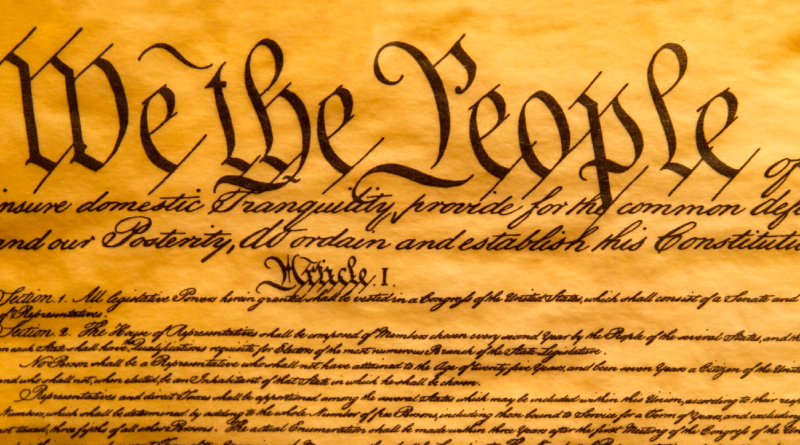 We the People of
insure domestic Tranquility, provide for the common defe
and our Posterity, do ordain and establish this Constitutio
Article I.
Section 1. All legislative Powers herein granted shall be vested in a Congress of the United States, which shall consist of a Senate and
of Representatives.
Section 2. The House of Representatives shall be composed of Members chosen every second Year by the People of the several States, and the
in each State shall have Qualifications requisite for Electors of the most numerous Branch of the State Legislature.
No Person shall be a Representative who shall not have attained to the Age of twenty five Years, and been seven Years a Citizen of the United
and who shall not, when elected, be an Inhabitant of that State in which he shall be chosen.
Representatives and direct Taxes shall be apportioned among the several States which may be included within this Union, according to their respe
Numbers, which shall be determined by adding to the whole Number of free Persons, including those bound to Service for a Term of Years, and excluding
not taxed, three fifths of all other Persons. The actual Enumeration shall be made within three Years after the first Meeting of the Congress of the Un